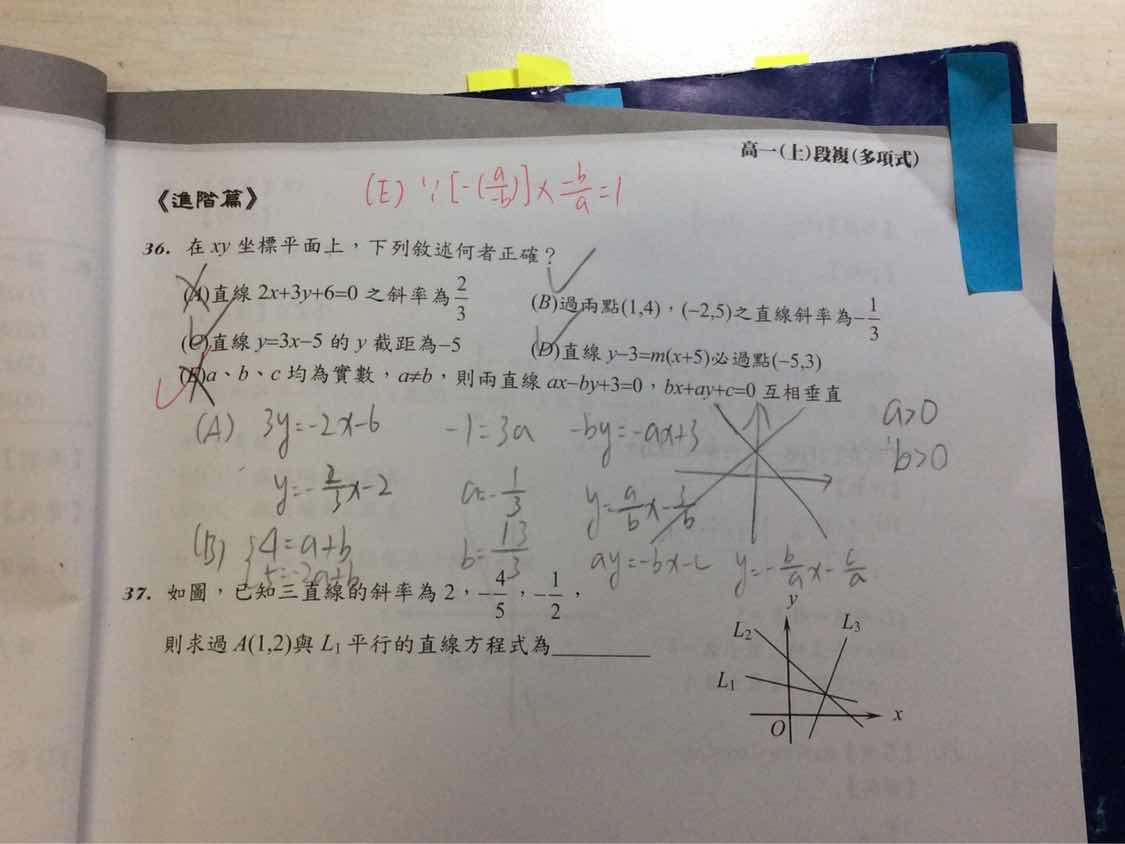 高一(上)段複(多項式)
《進階篇》
(E) ∵ [-(a/-b)] × -b/a = 1
36. 在 xy 坐標平面上,下列敘述何者正確?
(A)直線 2x+3y+6=0 之斜率為 2/3
(B)過兩點(1,4),(−2,5)之直線斜率為−1/3
(C)直線 y=3x−5 的 y 截距為−5
(D)直線 y−3=m(x+5)必過點(−5,3)
(E)a、b、c 均為實數,a≠b,則兩直線 ax−by+3=0,bx+ay+c=0 互相垂直
(A) 3y=-2x-6
y=-2/3x-2
(B) 4=a+b
5=-2a+b
-1=3a
a=-1/3
b=13/3
-by=-ax+3
y=a/bx-3/b
ay=-bx-c
y=-b/ax-c/a
a>0
b>0
37. 如圖,已知三直線的斜率為 2,−4/5,−1/2,
則求過 A(1,2)與 L₁ 平行的直線方程式為________
y
L₂
L₃
L₁
x
O